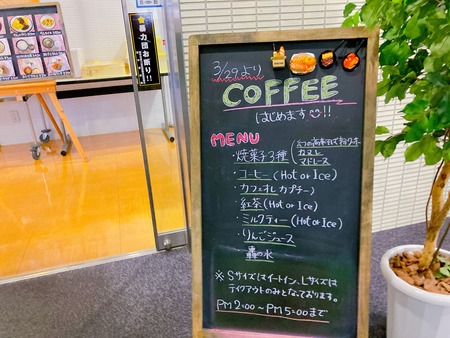 暴力団お断り!!
3/29より
COFFEE
はじめます!!
MENU
・焼菓子3種
カヌレ
マドレーヌ
・コーヒー(Hot or Ice)
・カフェオレカプチーノ
・紅茶(Hot or Ice)
・ミルクティー(Hot or Ice)
・りんごジュース
・轟の水
※Sサイズはイートイン、Lサイズは
テイクアウトのみとなっております。
PM2:00~PM5:00まで